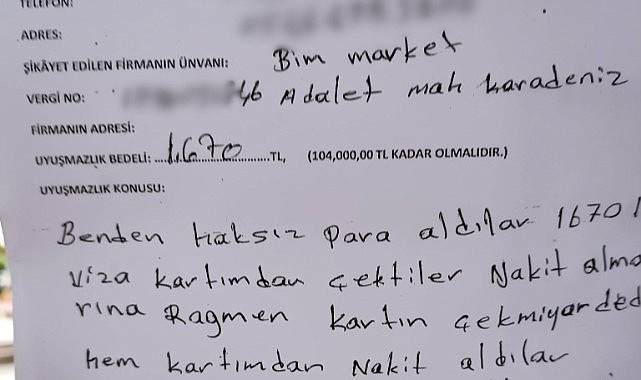 TELEFON:
ADRES:
ŞİKÂYET EDİLEN FİRMANIN ÜNVANI: Bim market
VERGİ NO: 46 Adalet mah karadeniz
FİRMANIN ADRESİ:
UYUŞMAZLIK BEDELİ: ....1.670....TL, (104,000,00 TL KADAR OLMALIDIR.)
UYUŞMAZLIK KONUSU:
Benden haksız para aldılar 1670
Viza kartımdan çektiler Nakit alma
rına Ragmen kartın çekmiyor ded
hem kartımdan Nakit aldılar